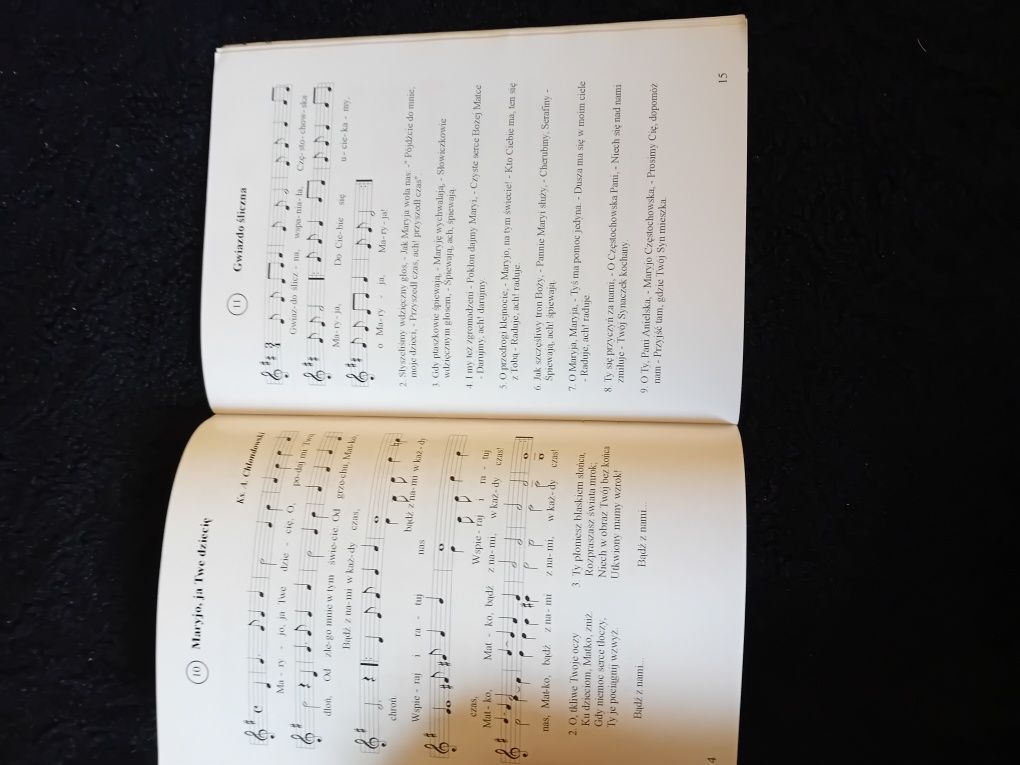 10 Maryjo, ja Twe dziecię
Ks. A. Chlondowski
Ma - ry - jo, ja Twe dzie - cię, O, po-daj mi Twą
dłoń, Od złe-go mnie w tym świe-cie. Od grze-chu, Mat-ko,
Bądź z na-mi w każ-dy czas,
chroń. bądź z na-mi w każ-dy
Wspie-raj i ra - tuj nas
czas, Wspie-raj i ra - tuj
Mat-ko, Mat - ko, bądź z na-mi, w każ-dy czas!
nas, Mat-ko, bądź z na-mi z na-mi, w każ-dy czas!
2. O, tkliwe Twoje oczy
Ku dzieciom, Matko, zniż
Gdy memoc serce tłoczy,
Ty je pociągnij wzwyż.
Bądź z nami...
3. Ty płoniesz blaskiem słońca,
Rozpraszasz świata mrok;
Niech w obraz Twój bez końca
Utkwiony mamy wzrok!
Bądź z nami...
4
11 Gwiazdo śliczna
Gwiaz-do ślicz - na, wspa-nia-ła, Czę-sto-chow-ska
Ma-ry-ja, Do Cie-bie się u-cie-ka-my,
o Ma-ry - ja, Ma-ry-ja!
2. Słyszeliśmy wdzięczny głos, - Jak Maryja woła nas: -" Pójdźcie do mnie,
moje dzieci, - Przyszedł czas, ach! przyszedł czas".
3. Gdy ptaszkowie śpiewają, - Maryję wychwalają, - Słowiczkowie
wdzięcznym głosem, - Śpiewają, ach, śpiewają.
4. I my też zgromadzeni - Pokłon dajmy Maryi, - Czyste serce Bożej Matce
- Darujmy, ach! darujmy
5. O przedrogi klejnocie, - Maryjo, na tym świecie! - Kto Ciebie ma, ten się
z Tobą - Raduje, ach! raduje.
6. Jak szczęśliwy tron Boży, - Pannie Maryi służy, - Cherubiny, Serafiny -
Śpiewają, ach! śpiewają
7. O Maryja, Maryja, - Tyś ma pomoc jedyna. - Dusza ma się w moim ciele
- Raduje, ach! raduje.
8. Ty się przyczyń za nami, - O Częstochowska Pani, - Niech się nad nami
zmiłuje - Twój Synaczek kochany.
9. O Ty, Pani Anielska, - Maryjo Częstochowska, - Prosimy Cię, dopomóż
nam - Przyjść tam, gdzie Twój Syn mieszka.
15